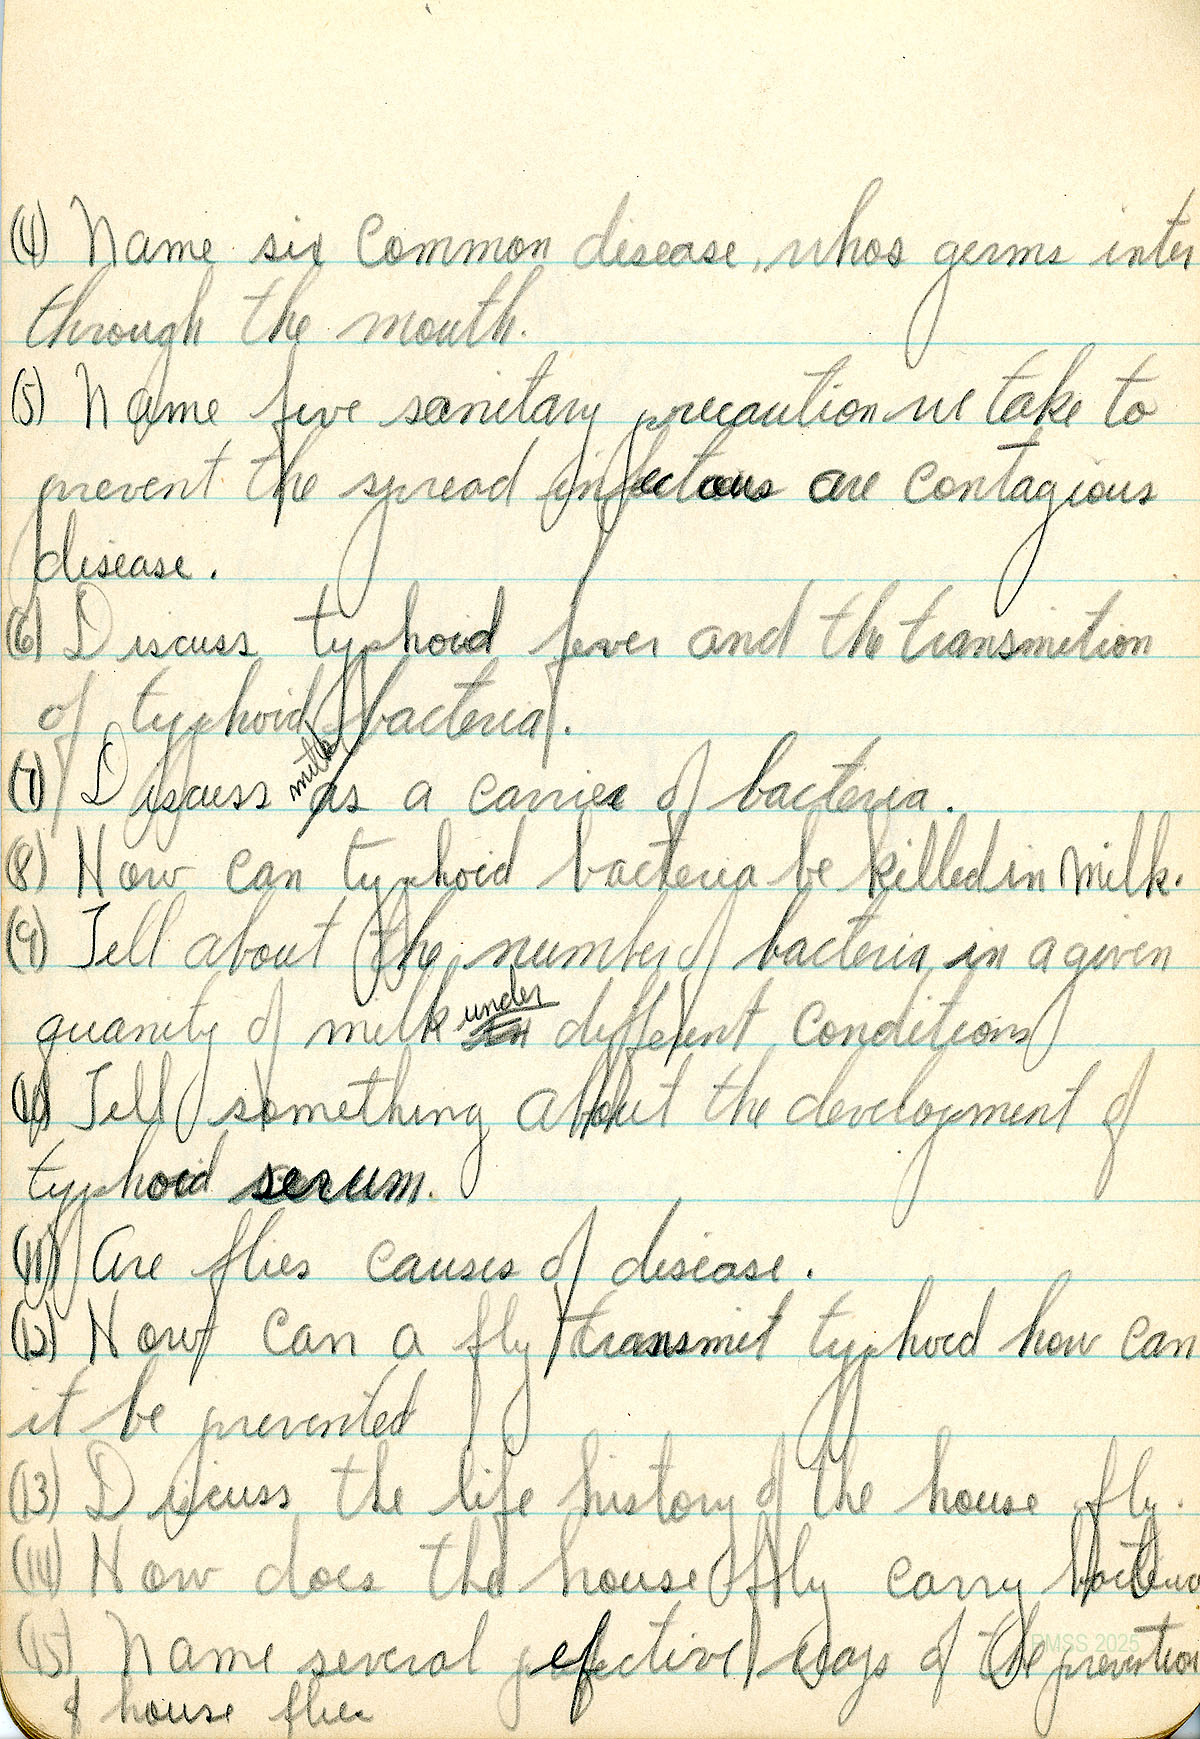 (4) Name six Common disease, whos germs inter
through the mouth.
(5) Name five sanitary precaution we take to
prevent the spread infectous are contagious
disease.
(6) Discuss typhoid fever and the transmition
of typhoid bacteria.
(7) Discuss milk as a carrier of bacteria.
(8) How can typhoid bacteria be killed in milk.
(9) Tell about the number of bacteria in a given
quanity of milk under different conditions
(10) Tell something about the development of
typhoid serum.
(11) Are flies causes of disease.
(12) How can a fly transmit typhoid how can
it be prevented
(13) Discuss the life history of the house fly.
(14) How does the house fly carry bacteria
(15) Name several effective ways of the prevention
of house flies
PMSS 2025